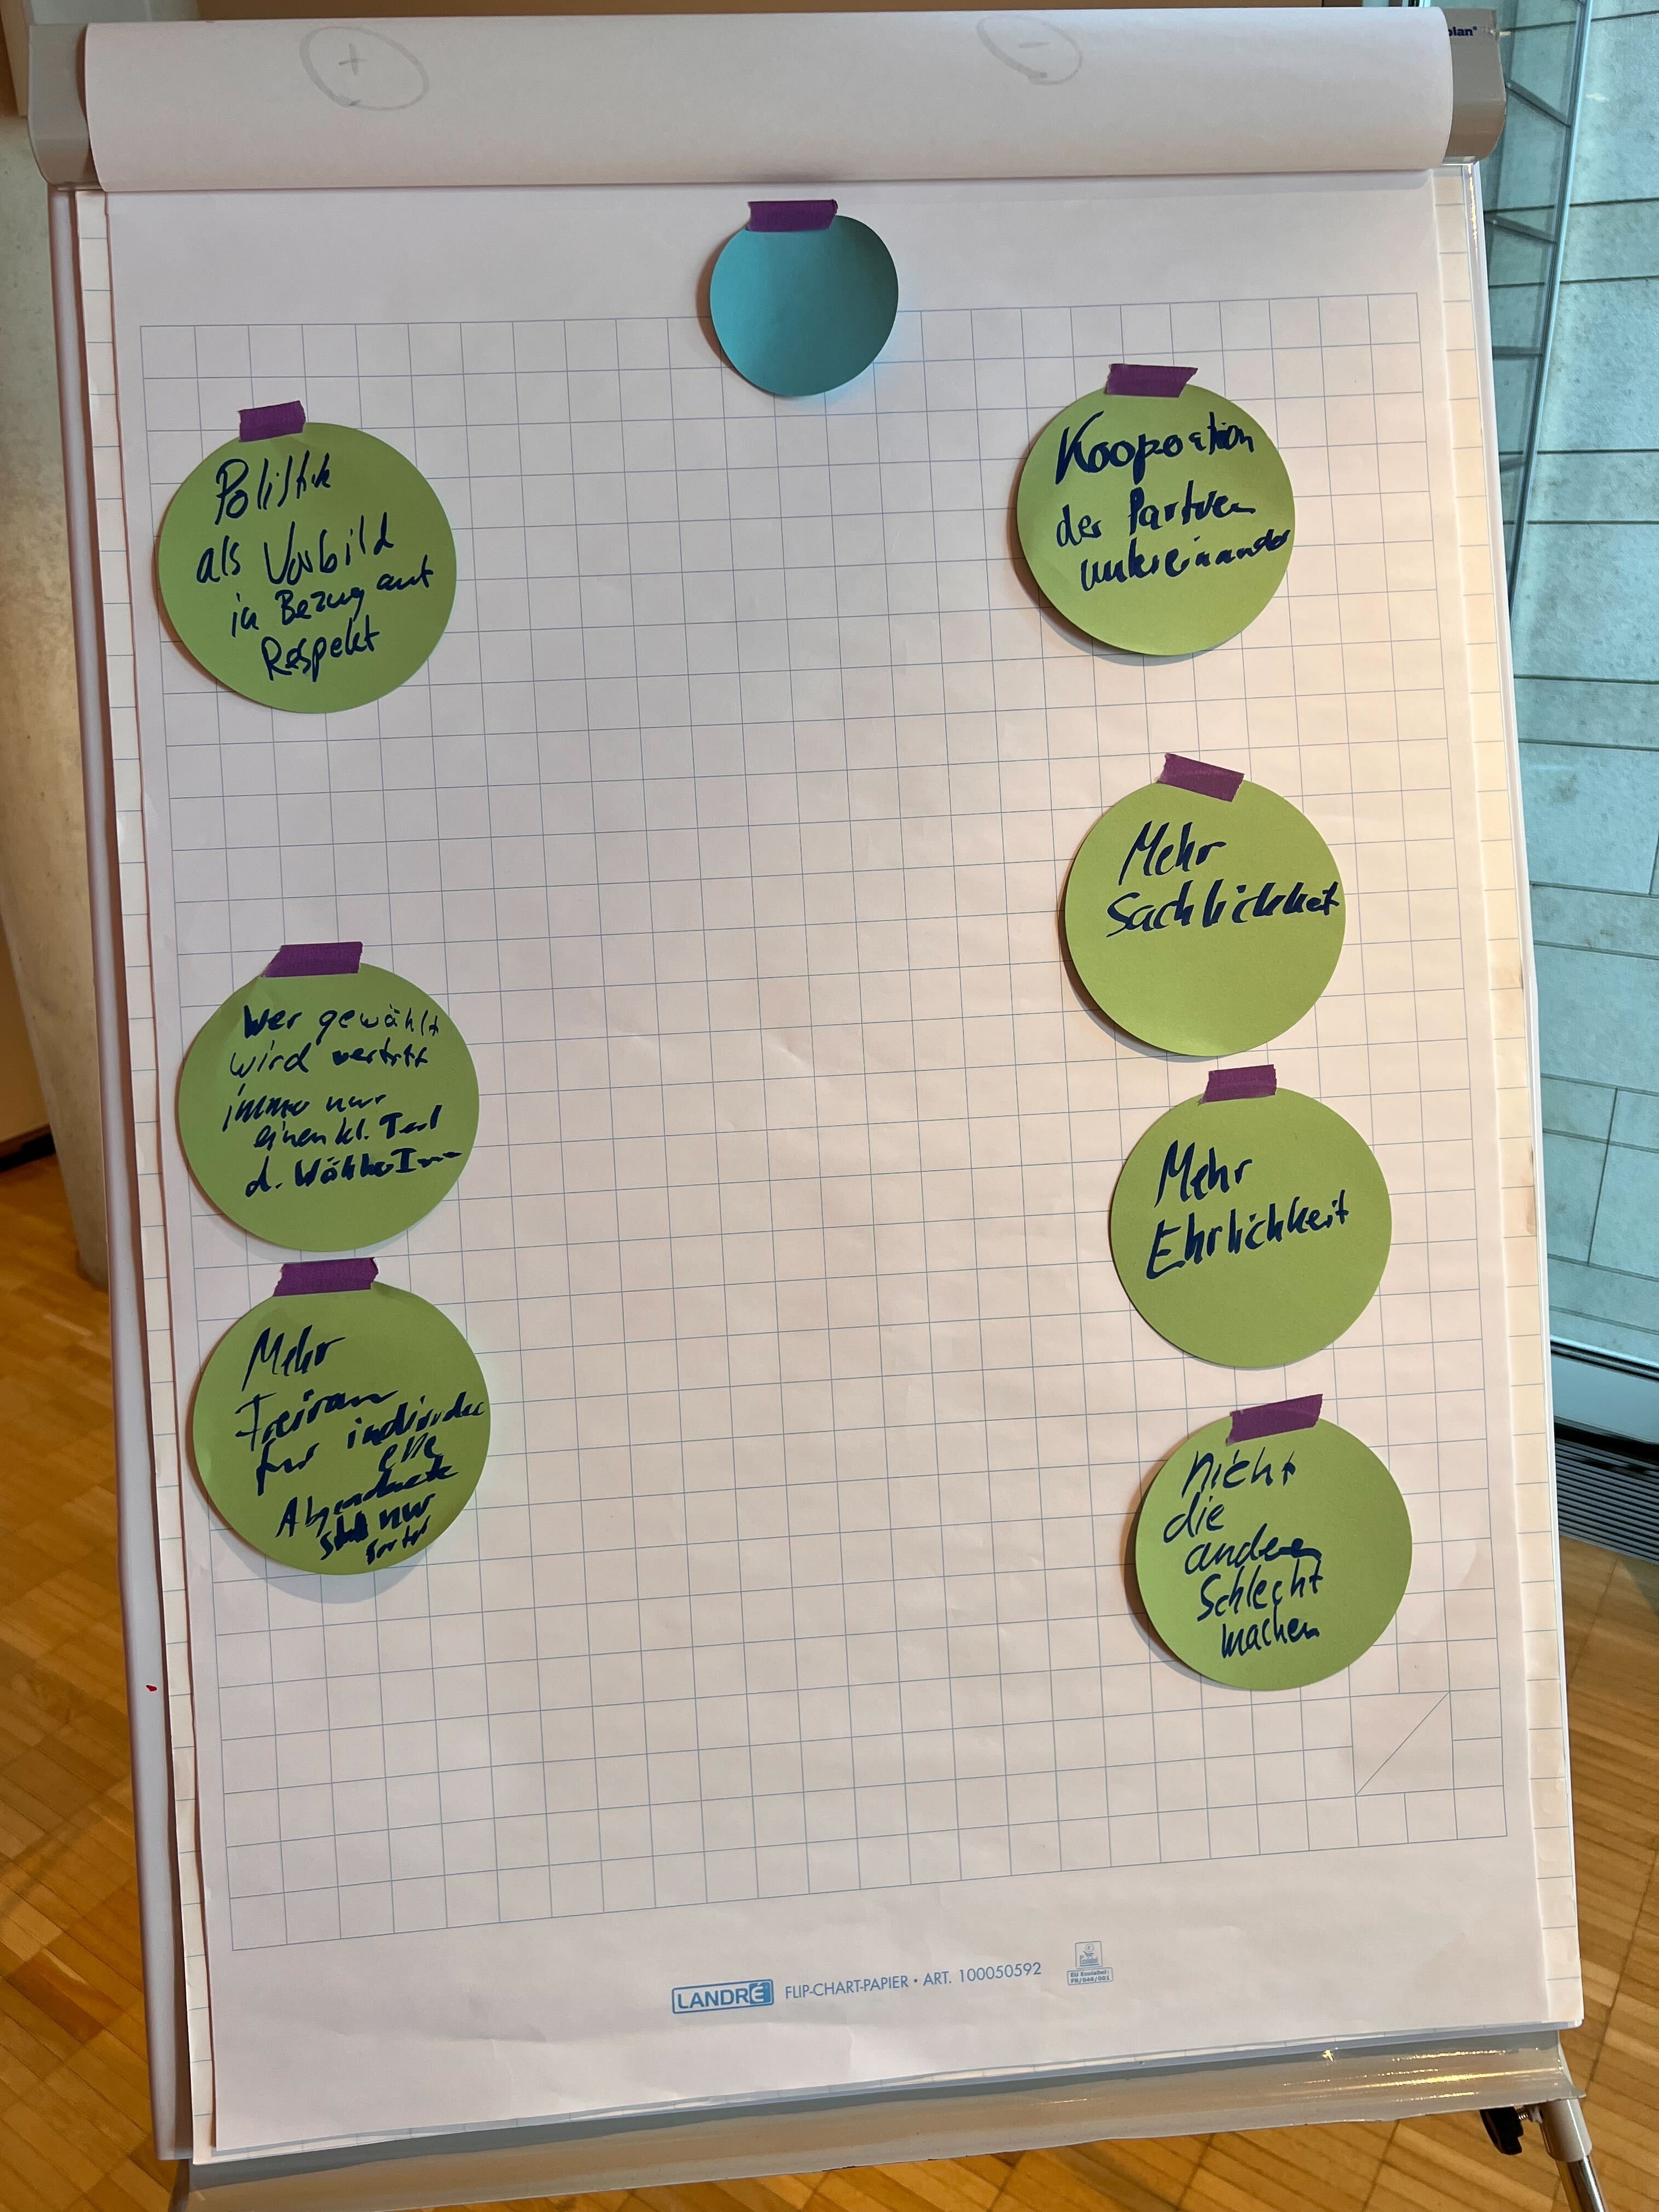 +
-
plan®
Politik
als Vorbild
in Bezug auf
Respekt
Wer gewählt
wird vertritt
immer nur
einen kl. Teil
d. WählerInnen
Mehr
Freiraum
für individu
elle
Abgeordnete
statt nur
Kooperation
der Parteien
untereinander
Mehr
Sachlichkeit
Mehr
Ehrlichkeit
nicht
die
anderen
Schlecht
machen
LANDRÉ FLIP-CHART-PAPIER • ART. 100050592
EU Ecolabel:
FR/046/001